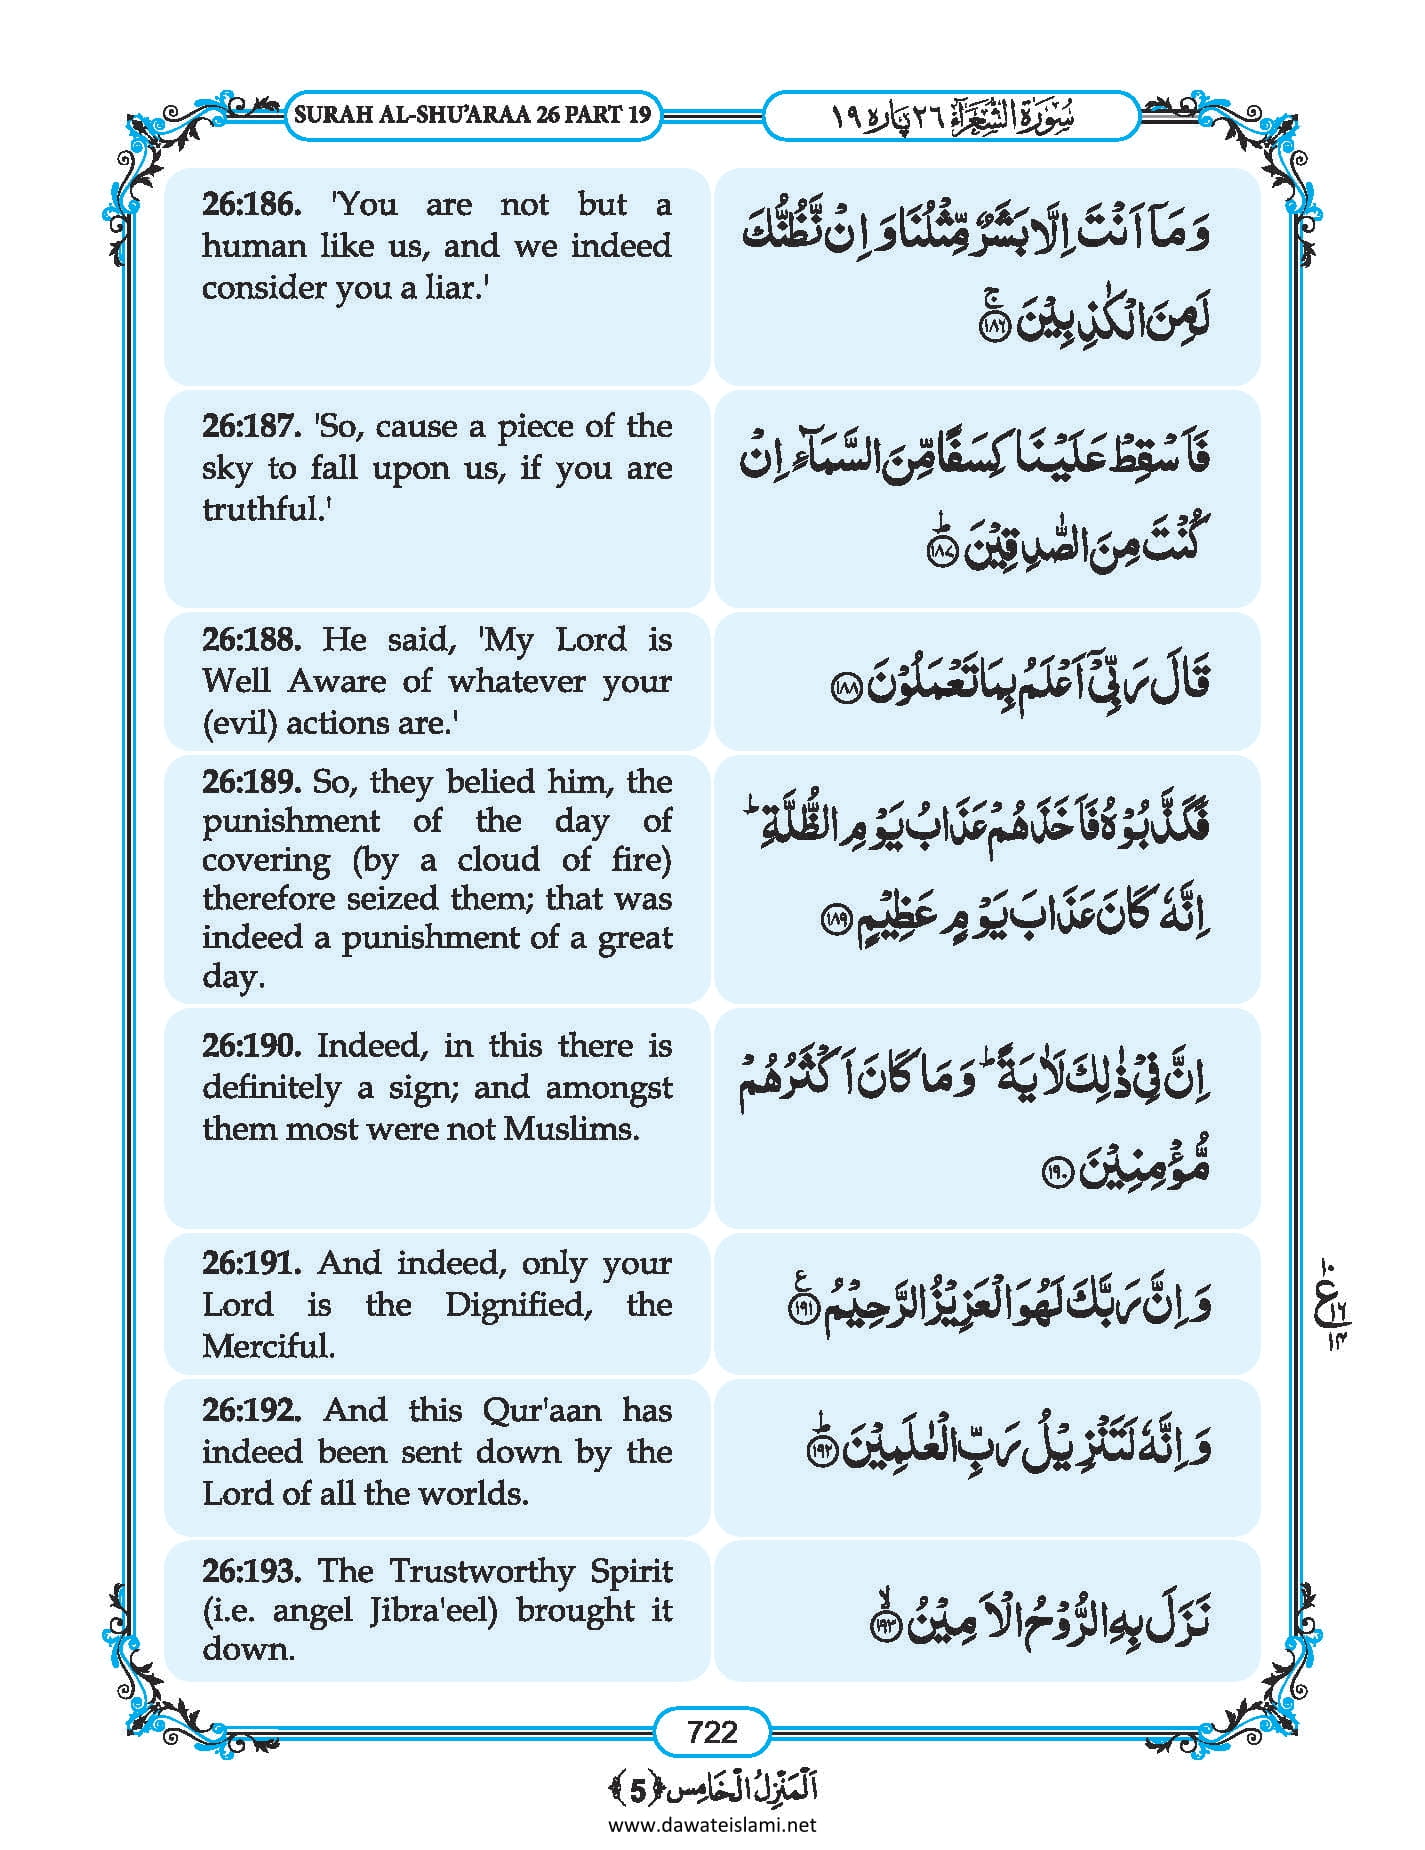 SURAH AL-SHU'ARAA 26 PART 19
سُوْرَةُ الشُّعَرَآءِ ٢٦ پاره ١٩
26:186. 'You are not but a
human like us, and we indeed
consider you a liar.'
وَ مَاۤ اَنْتَ اِلَّا بَشَرٌ مِّثْلُنَا وَ اِنْ نَّظُنُّكَ
لَمِنَ الْكٰذِبِیْنَۚ ﴿۱۸۶﴾
26:187. 'So, cause a piece of the
sky to fall upon us, if you are
truthful.'
فَاَسْقِطْ عَلَیْنَا كِسَفًا مِّنَ السَّمَآءِ اِنْ
كُنْتَ مِنَ الصّٰدِقِیْنَؕ ﴿۱۸۷﴾
26:188. He said, 'My Lord is
Well Aware of whatever your
(evil) actions are.'
قَالَ رَبِّیْۤ اَعْلَمُ بِمَا تَعْمَلُوْنَ ﴿۱۸۸﴾
26:189. So, they belied him, the
punishment of the day of
covering (by a cloud of fire)
therefore seized them; that was
indeed a punishment of a great
day.
فَكَذَّبُوْهُ فَاَخَذَهُمْ عَذَابُ یَوْمِ الظُّلَّةِؕ
اِنَّهٗ كَانَ عَذَابَ یَوْمٍ عَظِیْمٍ ﴿۱۸۹﴾
26:190. Indeed, in this there is
definitely a sign; and amongst
them most were not Muslims.
اِنَّ فِیْ ذٰلِكَ لَاٰیَةًؕ وَ مَا كَانَ اَكْثَرُهُمْ
مُّؤْمِنِیْنَ ﴿۱۹۰﴾
26:191. And indeed, only your
Lord is the Dignified, the
Merciful.
وَ اِنَّ رَبَّكَ لَهُوَ الْعَزِیْزُ الرَّحِیْمُ ﴿۱۹۱﴾ ع
١٠
ع ١٦
١٤
26:192. And this Qur'aan has
indeed been sent down by the
Lord of all the worlds.
وَ اِنَّهٗ لَتَنْزِیْلُ رَبِّ الْعٰلَمِیْنَؕ ﴿۱۹۲﴾
26:193. The Trustworthy Spirit
(i.e. angel Jibra'eel) brought it
down.
نَزَلَ بِهِ الرُّوْحُ الْاَمِیْنُۙ ﴿۱۹۳﴾
722
اَلْمَنْزِلُ الْخَامِس ﴿5﴾
www.dawateislami.net